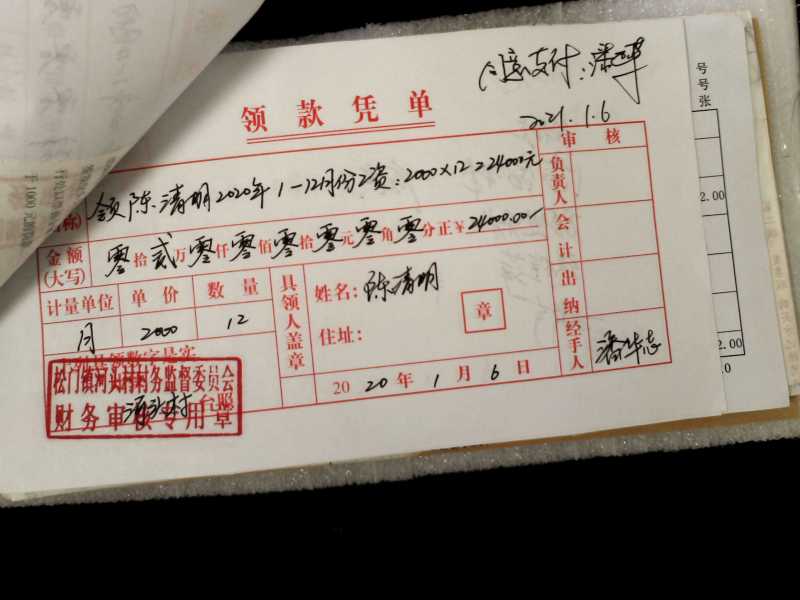 同意支付:潘
2021.1.6
领款凭单
审核
领陈清明2020年1-12月份工资:2000×12=24000元
负责人
金额(大写) 零拾贰万零仟零佰零拾零元零角零分正¥24000.00
会计
计量单位 单价 数量
月 2000 12
具领人盖章
姓名:陈清明
住址:
章
出纳
经手人 潘华志
2020年1月6日
松门镇河头村村务监督委员会
财务审核专用章
台照
号
号
张
2.00
2.00
0